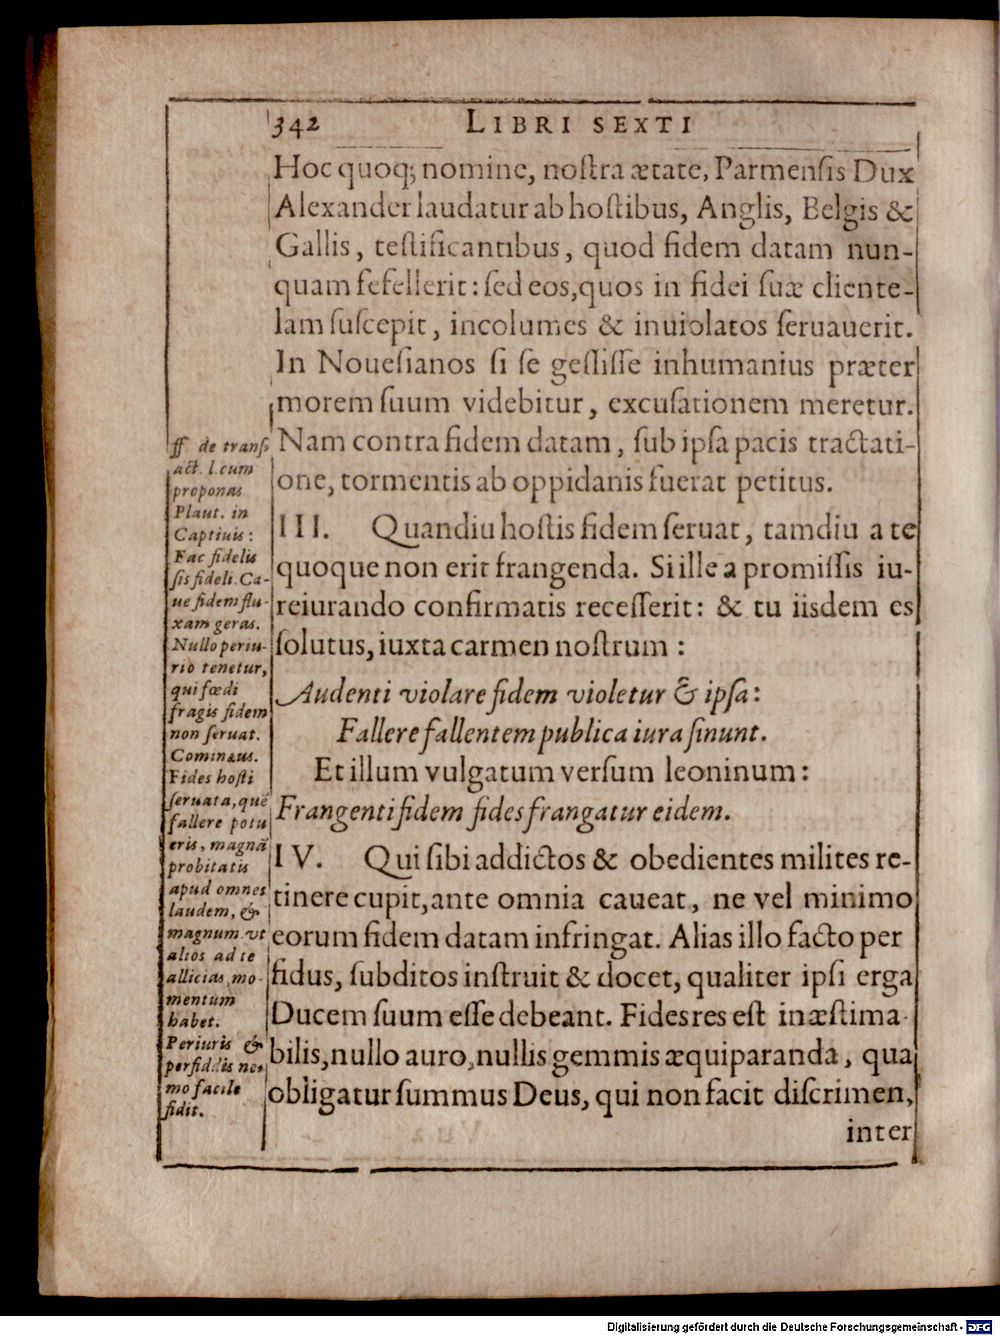 342 LIBRI SEXTI
Hoc quoq; nomine, noſtra ætate, Parmenſis Dux
Alexander laudatur ab hoſtibus, Anglis, Belgis &
Gallis, teſtificantibus, quod fidem datam nun-
quam fefellerit: ſed eos, quos in fidei ſuæ cliente-
lam ſuſcepit, incolumes & inuiolatos ſeruauerit.
In Noueſianos ſi ſe geſſiſſe inhumanius præter
morem ſuum videbitur, excuſationem meretur.
Nam contra fidem datam, ſub ipſa pacis tractati-
one, tormentis ab oppidanis fuerat petitus.
III. Quandiu hoſtis fidem ſeruat, tamdiu a te
quoque non erit frangenda. Si ille a promiſſis iu-
reiurando confirmatis receſſerit: & tu iisdem es
ſolutus, iuxta carmen noſtrum:
Audenti violare fidem violetur & ipſa:
Fallere fallentem publica iura ſinunt.
Et illum vulgatum verſum leoninum:
Frangenti fidem fides frangatur eidem.
IV. Qui ſibi addictos & obedientes milites re-
tinere cupit, ante omnia caueat, ne vel minimo
eorum fidem datam infringat. Alias illo facto per
fidus, ſubditos inſtruit & docet, qualiter ipſi erga
Ducem ſuum eſſe debeant. Fides res eſt inæſtima-
bilis, nullo auro, nullis gemmis æquiparanda, qua
obligatur ſummus Deus, qui non facit diſcrimen,
inter
ff de tranſ
act. l. cum
proponas
Plaut. in
Captiuis:
Fac fidelis
ſis fideli. Ca-
ue fidem flu-
xam geras.
Nullo periu-
rio tenetur,
qui fœdi
fragis fidem
non ſeruat.
Cominæus.
Fides hoſti
ſeruata, quē
fallere potu
eris, magnā
probitatis
apud omnes
laudem, &
magnum vt
alios ad te
allicias, mo-
mentum
habet.
Periuris &
perfidis ne-
mo facile
fidit.
Digitalisierung gefördert durch die Deutsche Forschungsgemeinschaft - DFG